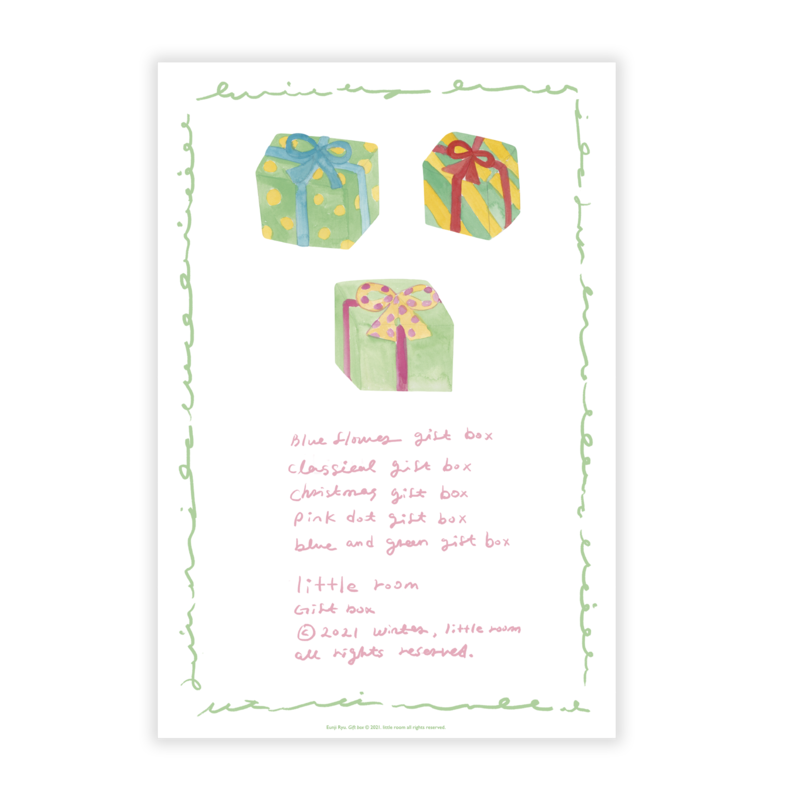 Blue flower gift box
classical gift box
christmas gift box
Pink dot gift box
blue and green gift box
little room
Gift box
© 2021 winter, little room
all rights reserved.
Eunji Ryu, Gift box © 2021. little room all rights reserved.